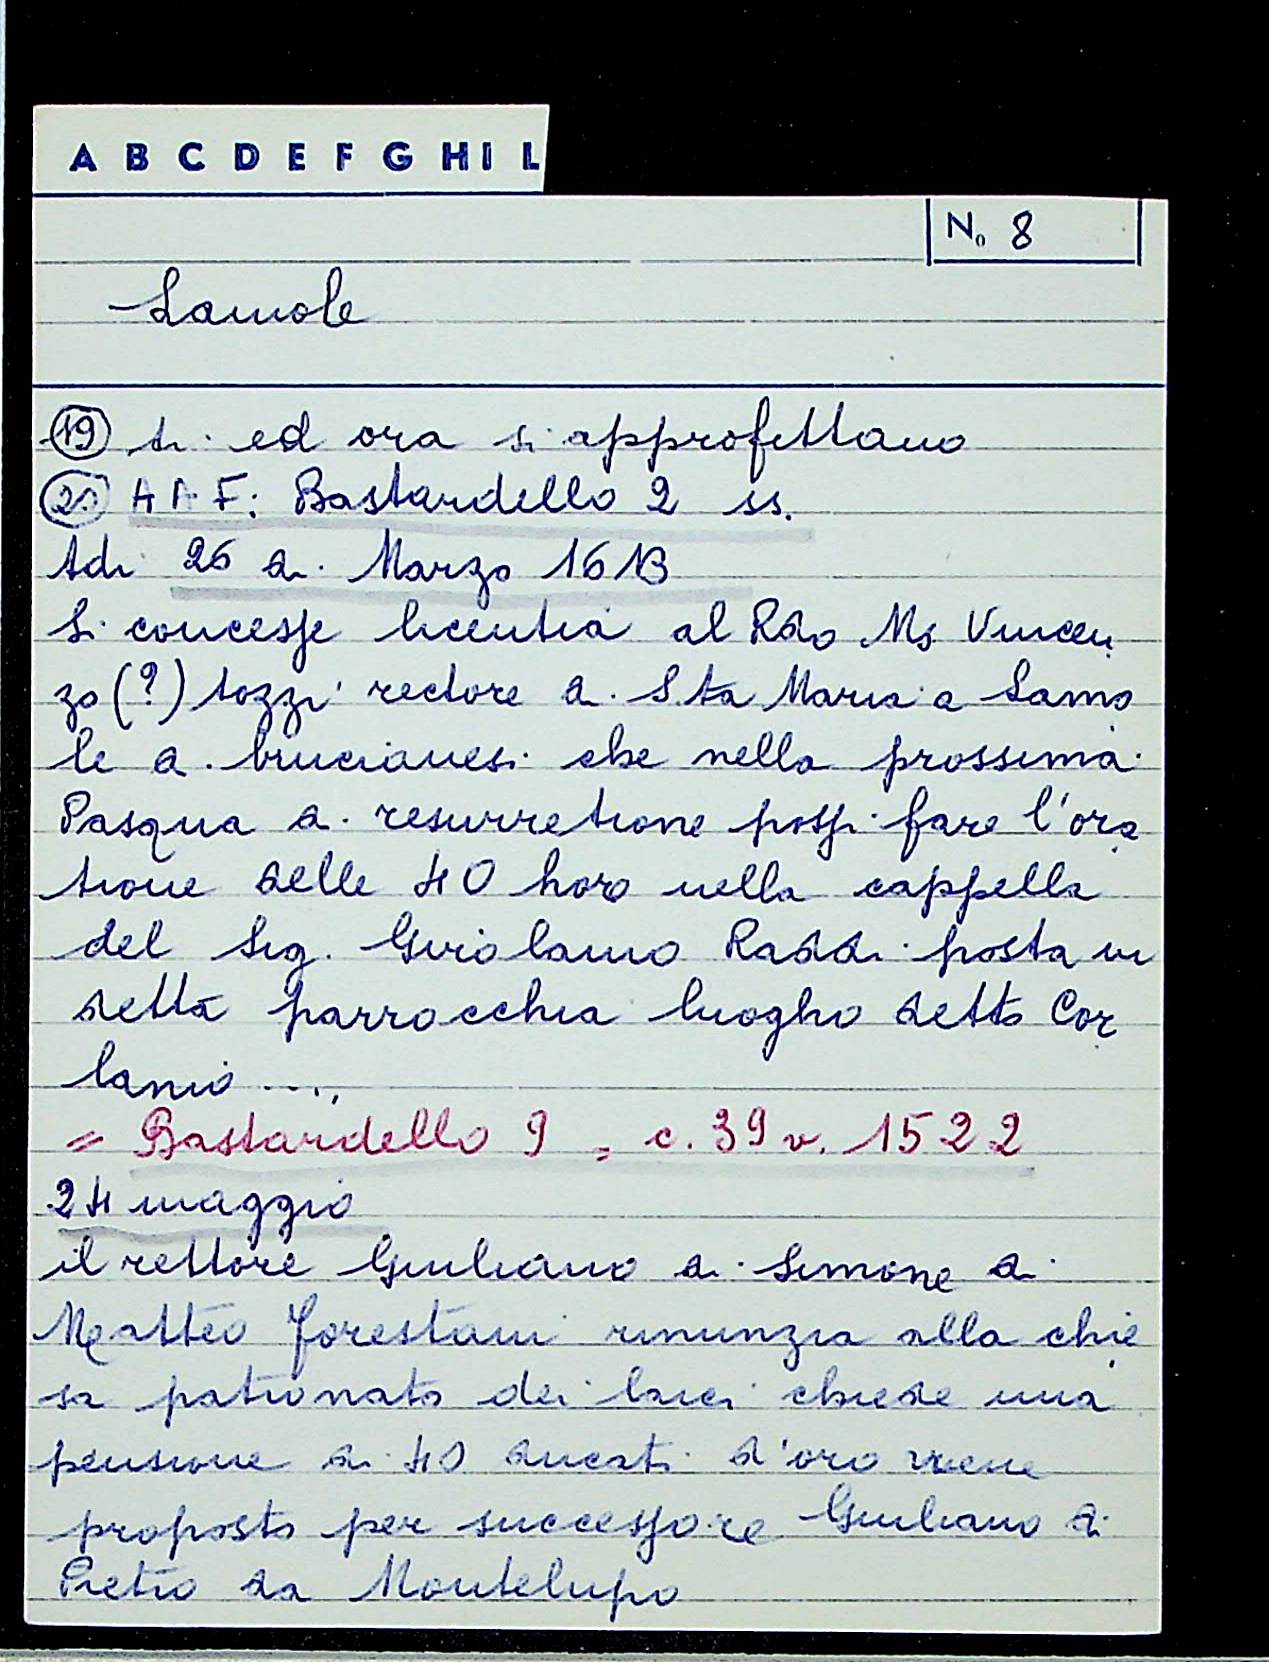 A B C D E F G H I L
No 8
Lamole
(19) ti ed ora si approfettano
(20) AAF: Bastardello 2 ss.
Adi 26 di Marzo 1613
Si concesse licentia al Rdo Ms Vincen
zo (?) tozzi rectore di Sta Maria a Lamo
le a brucianesi che nella prossima
Pasqua di resurretione possi fare l'ora
tione delle 40 hore nella cappella
del Sig. Girolamo Raddi posta in
detta parrocchia luogho detto Cor
lanio ....
= Bastardello 9 = c. 39 v. 1522
24 maggio
il rettore Giuliano di Simone di
Matteo forestani rinunzia alla chie
sa patronato dei laici chiede una
pensione di 40 ducati d'oro viene
proposto per successore Giuliano di
Pietro da Montelupo